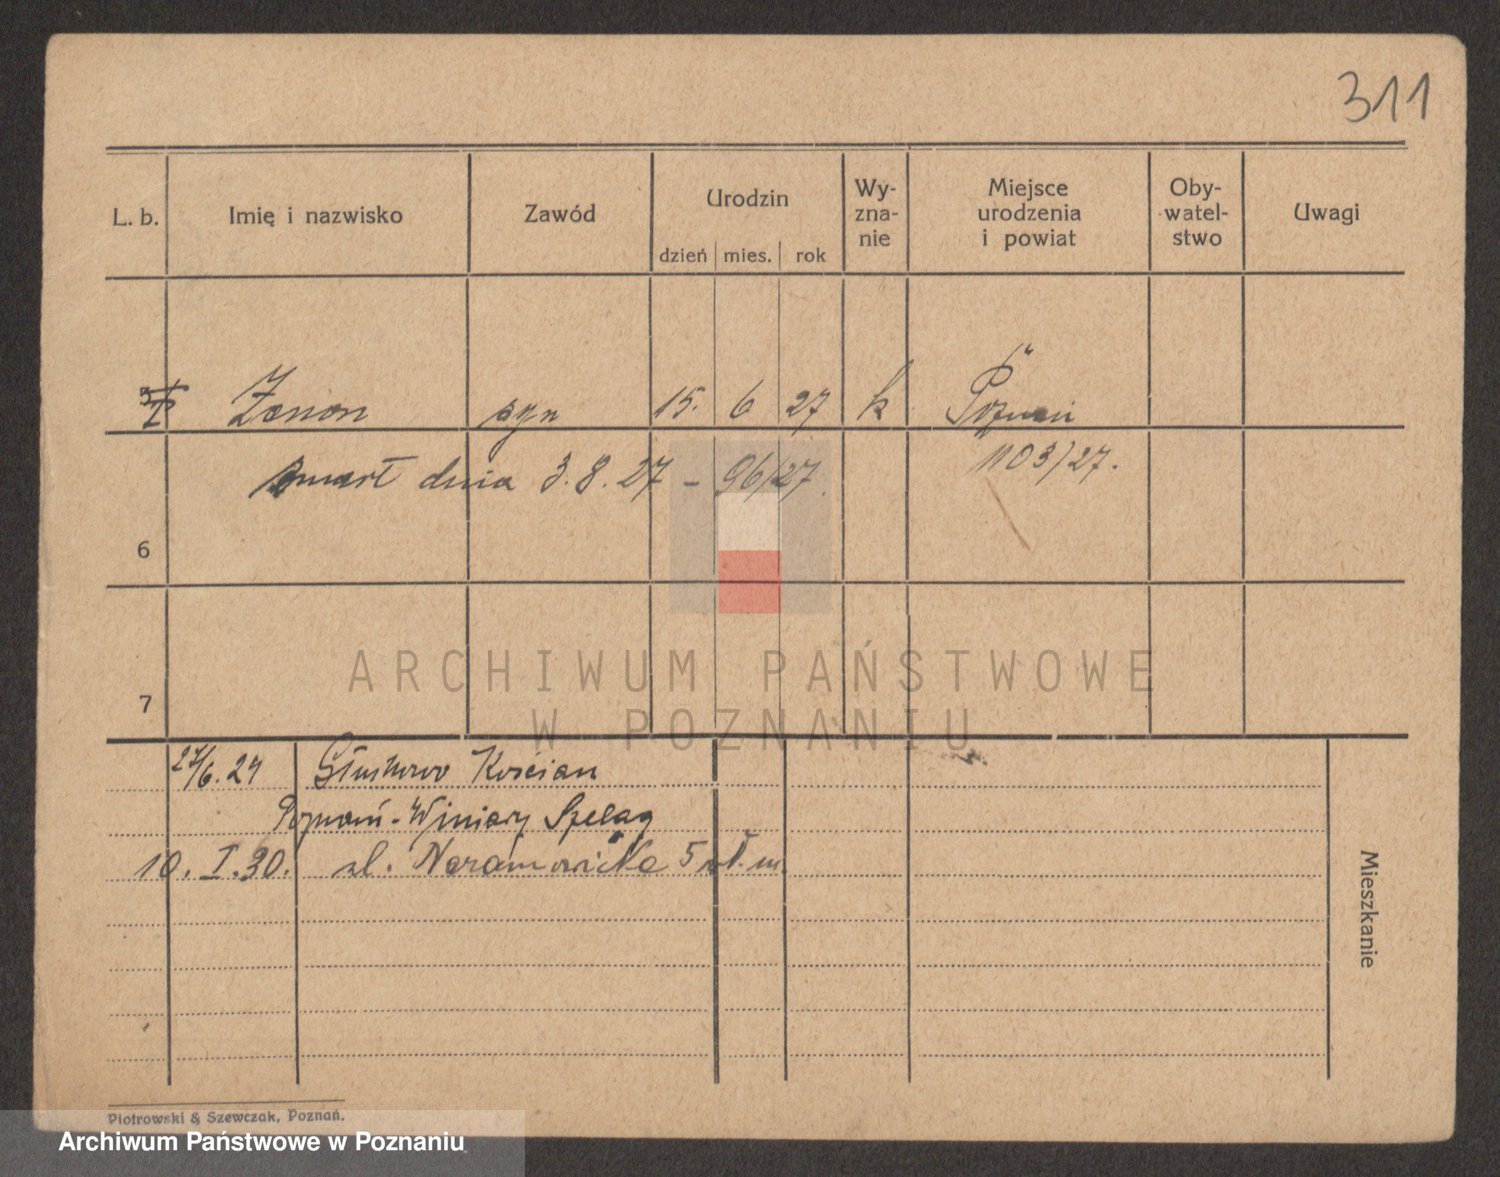 311
L. b. Imię i nazwisko Zawód Urodzin Wy- Miejsce Oby- Uwagi
zna- urodzenia watel-
nie i powiat stwo
dzień mies. rok
5 Zenon syn 15. 6 27 k Poznań
zmarł dnia 3.8.27 - 96/27. 1103/27.
6
ARCHIWUM PAŃSTWOWE
7
W POZNANIU
Kościan
Poznań-Winiary Szeląg
10. I. 30. ul. Naramowicka 5
Mieszkanie
Piotrowski & Szewczak, Poznań.
Archiwum Państwowe w Poznaniu